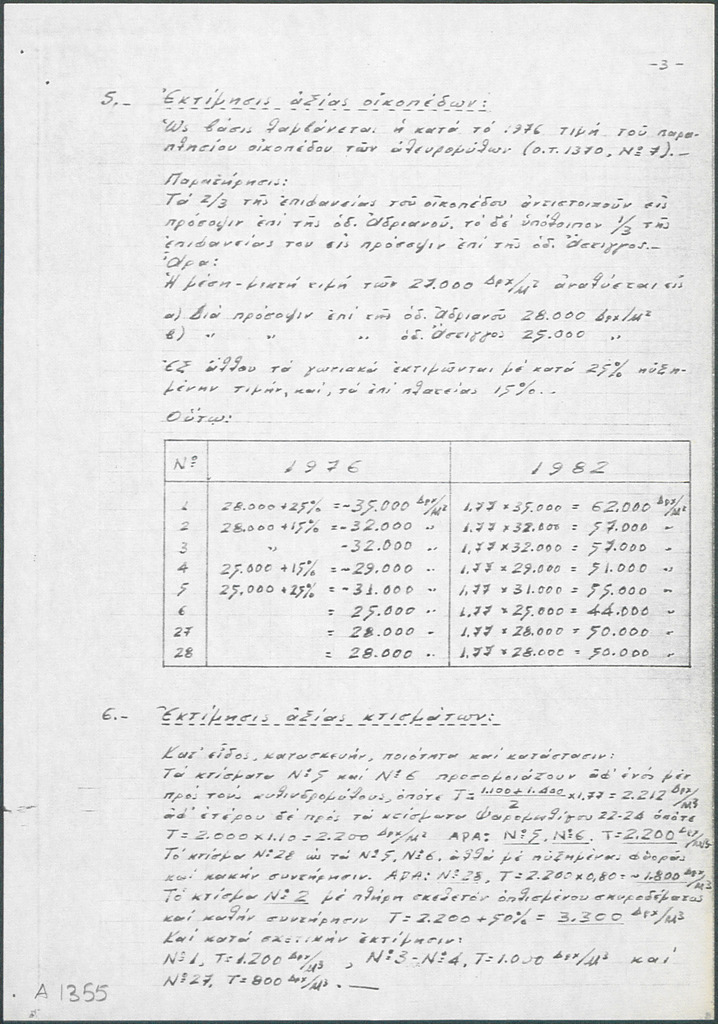 -3-
5.- Ἐκτίμησις ἀξίας οἰκοπέδων:
Ὡς βάσις λαμβάνεται ἡ κατά τό 1976 τιμή τοῦ παρα-
πλησίου οἰκοπέδου τῶν ἀλευρομύλων (Ο.Τ. 1370, Nº 7).-
Παρατήρησις:
Τά 2/3 τῆς ἐπιφανείας τοῦ οἰκοπέδου ἀντιστοιχοῦν εἰς
πρόσοψιν ἐπί τῆς ὁδ. Ἀδριανοῦ, τό δέ ὑπόλοιπον 1/3 τῆς
ἐπιφανείας του εἰς πρόσοψιν ἐπί τῆς ὁδ. Ἄστιγγος.-
Ἄρα:
Ἡ μέση-μικτή τιμή τῶν 27.000 Δρχ/Μ² ἀναλύεται εἰς
α) Διά πρόσοψιν ἐπί τῆς ὁδ. Ἀδριανοῦ 28.000 Δρχ/Μ²
β) " " " ὁδ. Ἄστιγγος 25.000 "
Ἐξ ἄλλου τά γωνιακά ἐκτιμῶνται μέ κατά 25% ηὐξη-
μένην τιμήν, καί, τά ἐπί πλατείας 15%.-
Οὕτω:
Nº 1976 1982
1 28.000+25% =~35.000 Δρχ/Μ² 1,77×35.000 = 62.000 Δρχ/Μ²
2 28.000+15% =~32.000 " 1,77×32.000 = 57.000 "
3 " ~32.000 " 1,77×32.000 = 57.000 "
4 25.000+15% =~29.000 " 1,77×29.000 = 51.000 "
5 25.000+25% =~31.000 " 1,77×31.000 = 55.000 "
6 = 25.000 " 1,77×25.000 = 44.000 "
27 = 28.000 " 1,77×28.000 = 50.000 "
28 = 28.000 " 1,77×28.000 = 50.000 "
6.- Ἐκτίμησις ἀξίας κτισμάτων:
Κατ' εἶδος, κατασκευήν, ποιότητα καί κατάστασιν:
Τά κτίσματα Nº5 καί Nº6 προσομοιάζουν ἀφ' ἑνός μέν
πρός τούς κυλινδρομύλους, ὁπότε Τ=(1.100+1.400)/2 ×1.77= 2.212 Δρχ/Μ³
ἀφ' ἑτέρου δέ πρός τά κτίσματα Φαρομηλίγου 22-24 ὁπότε
Τ=2.000×1.10=2.200 Δρχ/Μ² ΑΡΑ: Nº5, Nº6, Τ=2.200 Δρχ/Μ³
Τό κτίσμα Nº28 ὡς τά Nº5, Nº6, ἀλλά μέ ηὐξημένας φθοράς
καί κακήν συντήρησιν. ΑΡΑ: Nº28, Τ=2.200×0,80=~1.800 Δρχ/Μ³
Τό κτίσμα Nº2 μέ πλήρη σκελετόν ὁπλισμένου σκυροδέματος
καί καλήν συντήρησιν Τ=2.200+50% = 3.300 Δρχ/Μ³
Καί κατά σχετικήν ἐκτίμησιν:
Nº1, Τ=1.200 Δρχ/Μ³, Nº3-Nº4, Τ=1.000 Δρχ/Μ³ καί
Nº27, Τ=800 Δρχ/Μ³.—
A 1355